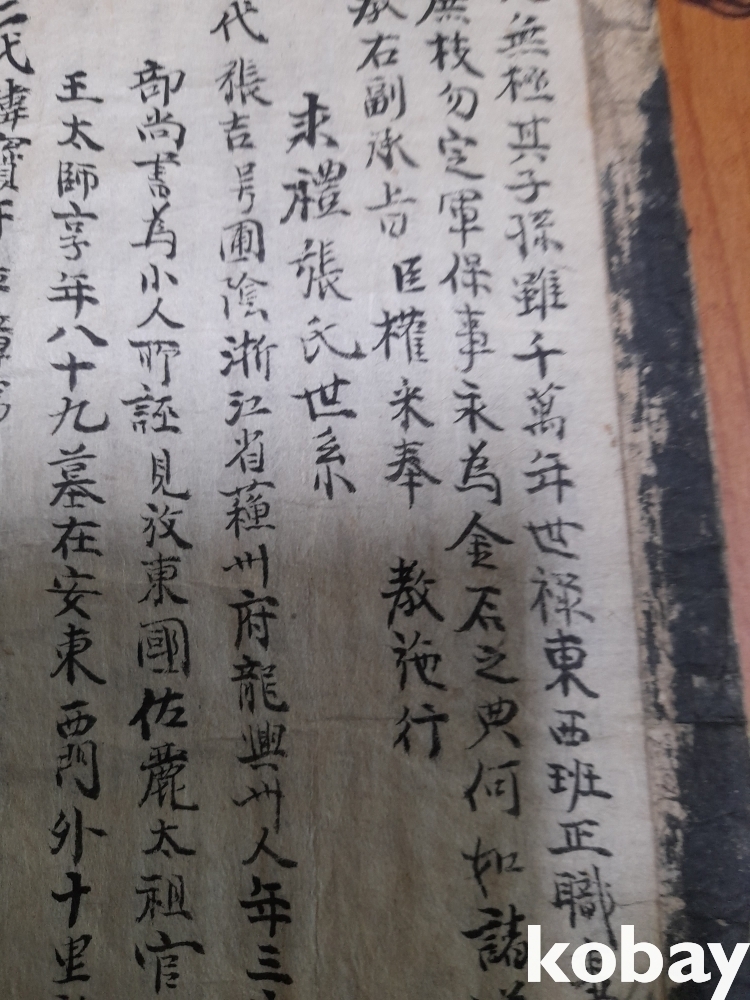 無極其子孫雖千萬年世祿東西班正職
庶枝勿定軍保事永為金石之典何如諸
右副承旨臣權來奉 教施行
求禮張氏世系
代張吉号圃陰浙江省蘓州府龍興州人年三
部尚書為小人所誣見放東國佐麗太祖官
王太師享年八十九墓在安東西門外十里
二代諱
kobay